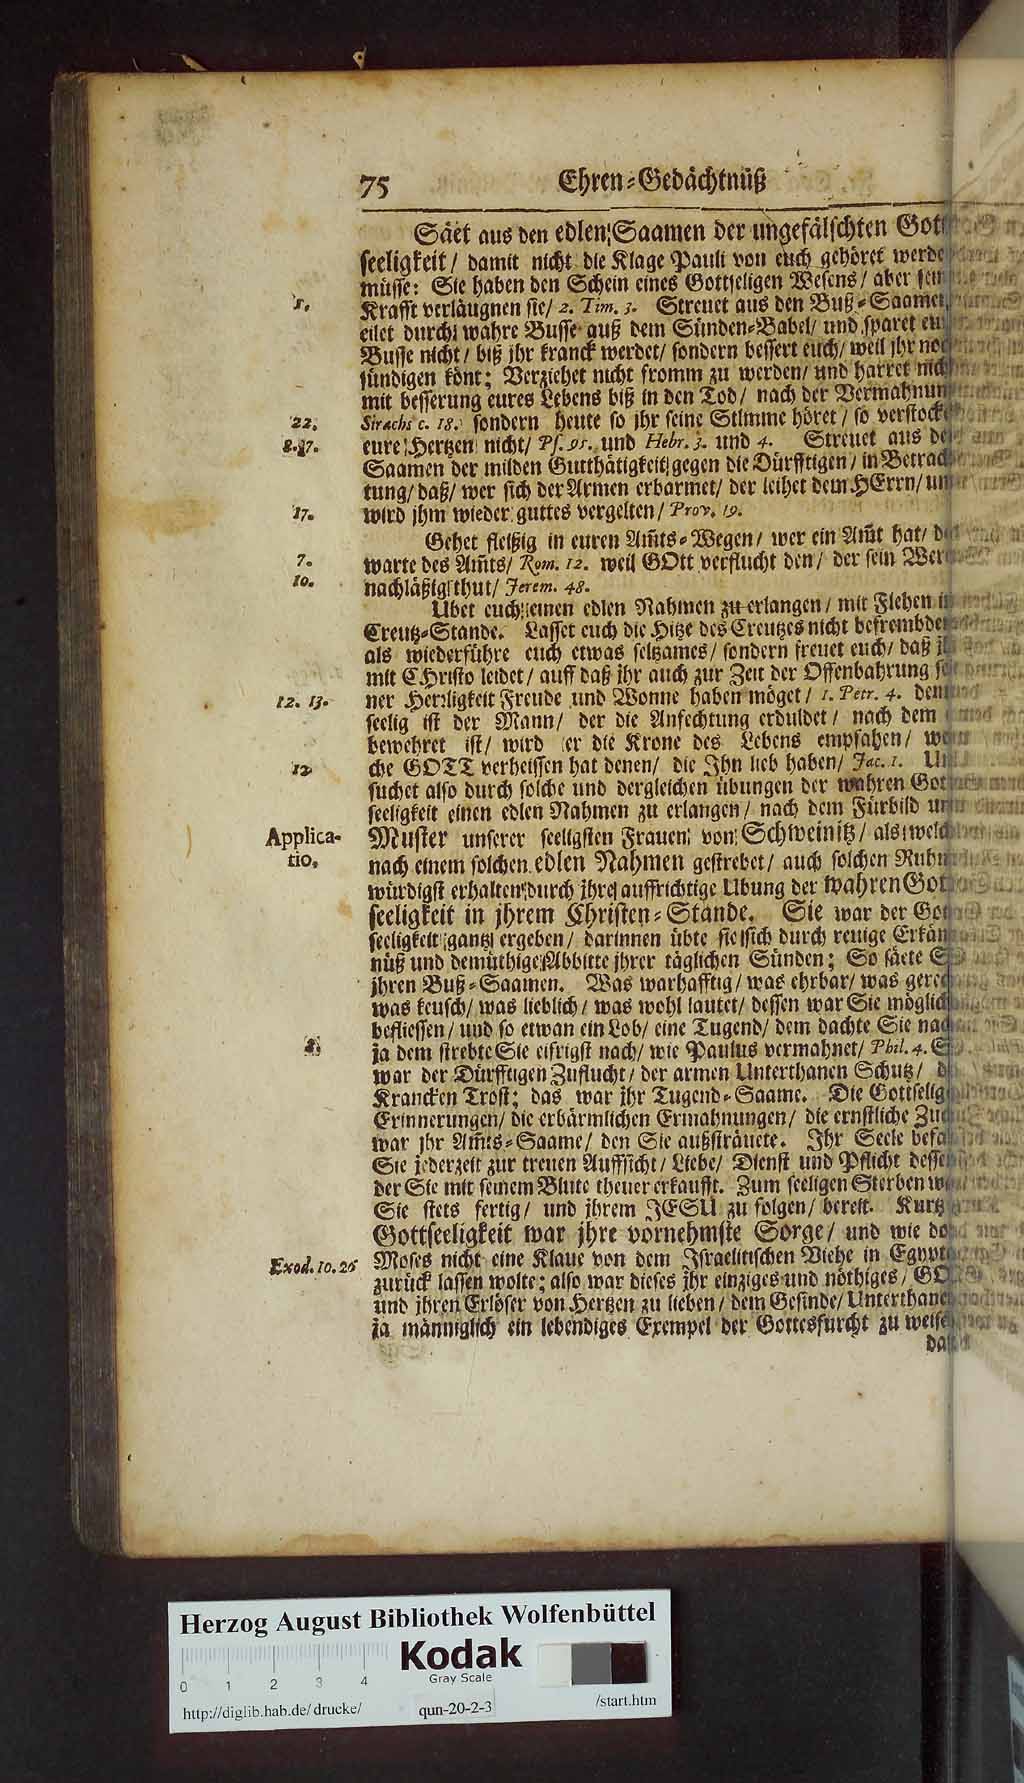 75 Ehren-Gedächtnüß
Säet aus den edlen Saamen der ungefälschten Gott
seeligkeit/ damit nicht die Klage Pauli von euch gehöret werde
müsse: Sie haben den Schein eines Gottseligen Wesens/ aber sein
5. Krafft verläugnen sie/ 2. Tim. 3. Streuet aus den Buß-Saamen
eilet durch wahre Busse auß dem Sünden-Babel/ und sparet eu
Busse nicht/ biß jhr kranck werdet/ sondern bessert euch/ weil jhr noc
sündigen könt; Verziehet nicht fromm zu werden/ und harret nich
mit besserung eures Lebens biß in den Tod/ nach der Vermahnun
22. Sirachs c. 18. sondern heute so jhr seine Stimme höret/ so verstocke
8. 7. eure Hertzen nicht/ Ps. 95. und Hebr. 3. und 4. Streuet aus de
Saamen der milden Gutthätigkeit gegen die Dürfftigen/ in Betrach
tung/ daß/ wer sich der Armen erbarmet/ der leihet dem HErrn/ un
17. wird jhm wieder guttes vergelten/ Prov. 19.
Gehet fleißig in euren Am̃ts-Wegen/ wer ein Am̃t hat/ d
7. warte des Am̃ts/ Rom. 12. weil GOtt verflucht den/ der sein Wer
10. nachläßig thut/ Jerem. 48.
Ubet euch einen edlen Nahmen zu erlangen/ mit Flehen i
Creutz-Stande. Lasset euch die Hitze des Creutzes nicht befrembde
als wiederführe euch etwas seltzames/ sondern freuet euch/ daß j
mit CHristo leidet/ auff daß jhr auch zur Zeit der Offenbahrung se
12. 13. ner Herrligkeit Freude und Wonne haben möget/ 1. Petr. 4. den
seelig ist der Mann/ der die Anfechtung erduldet/ nach dem
bewehret ist/ wird er die Krone des Lebens empfahen/ we
12 che GOTT verheissen hat denen/ die Jhn lieb haben/ Jac. 1. Un
suchet also durch solche und dergleichen übungen der wahren Got
seeligkeit einen edlen Nahmen zu erlangen/ nach dem Fürbild un
Applica- Muster unserer seeligsten Frauen von Schweinitz/ als welch
tio. nach einem solchen edlen Nahmen gestrebet/ auch solchen Ruhm
würdigst erhalten durch jhre auffrichtige Ubung der wahren Got
seeligkeit in jhrem Christen-Stande. Sie war der Got
seeligkeit gantz ergeben/ darinnen übte sie sich durch reuige Erkän
nüß und demüthige Abbitte jhrer täglichen Sünden; So säete S
jhren Buß-Saamen. Was warhafftig/ was ehrbar/ was gerec
was keusch/ was lieblich/ was wohl lautet/ dessen war Sie möglich
befliessen/ und so etwan ein Lob/ eine Tugend/ dem dachte Sie nac
8. ja dem strebte Sie eifrigst nach/ wie Paulus vermahnet/ Phil. 4. S
war der Dürfftigen Zuflucht/ der armen Unterthanen Schutz/ d
Krancken Trost; das war jhr Tugend-Saame. Die Gottselig
Erinnerungen/ die erbärmlichen Ermahnungen/ die ernstliche Zuc
war jhr Am̃ts-Saame/ den Sie außsträuete. Jhr Seele befa
Sie jederzeit zur treuen Auffsicht/ Liebe/ Dienst und Pflicht desse
der Sie mit seinem Blute theuer erkaufft. Zum seeligen Sterben w
Sie stets fertig/ und jhrem JESU zu folgen/ bereit. Kurtz
Gottseeligkeit war jhre vornehmste Sorge/ und wie do
Exod. 10. 26 Moses nicht eine Klaue von dem Jsraelitischen Viehe in Egypt
zurück lassen wolte; also war dieses jhr einziges und nöthiges/ GO
und jhren Erlöser von Hertzen zu lieben/ dem Gesinde/ Unterthane
ja männiglich ein lebendiges Exempel der Gottesfurcht zu weise
da
Herzog August Bibliothek Wolfenbüttel
Kodak
Gray Scale
0 1 2 3 4
http://diglib.hab.de/drucke/ qun-20-2-3 /start.htm